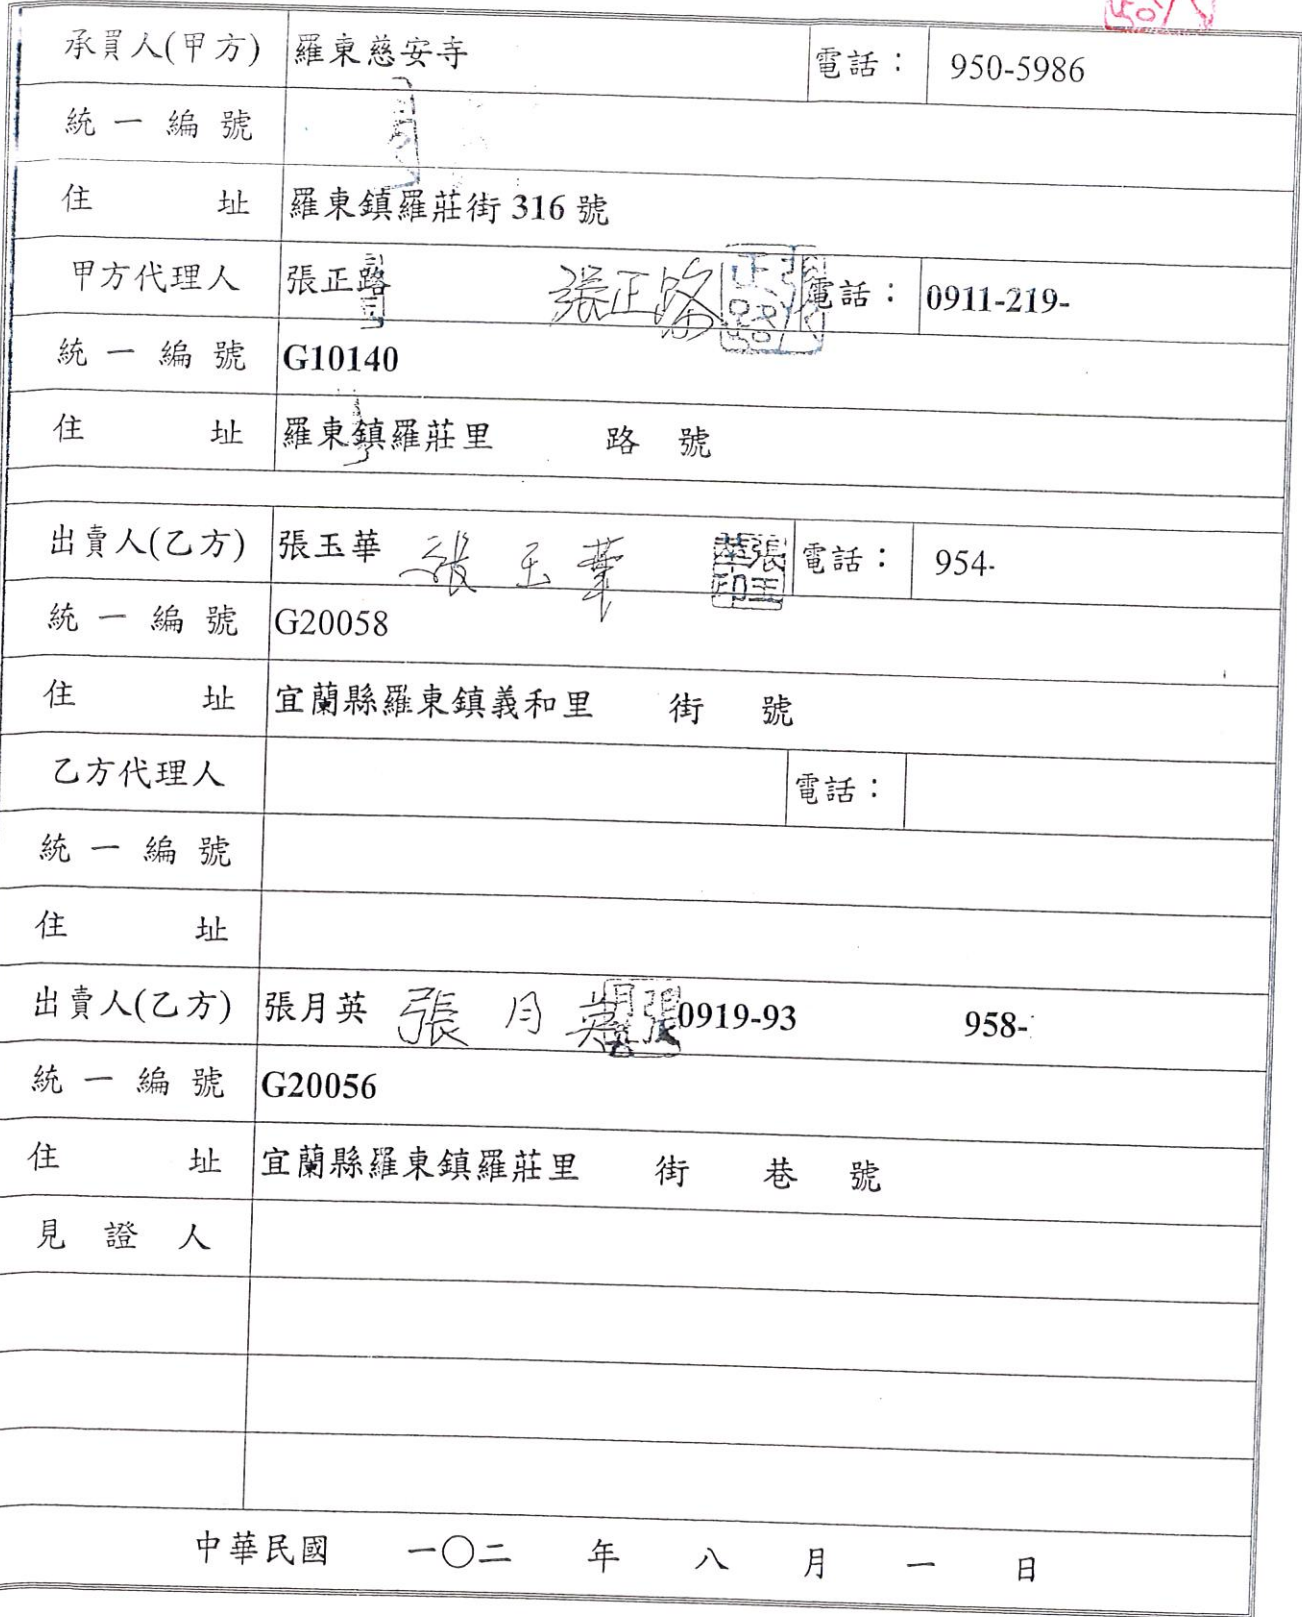 承買人(甲方) 羅東慈安寺 電話： 950-5986
統一編號
住 址 羅東鎮羅莊街 316 號
甲方代理人 張正路 張正路 電話： 0911-219-
統一編號 G10140
住 址 羅東鎮羅莊里 路 號
出賣人(乙方) 張玉華 張玉華 電話： 954-
統一編號 G20058
住 址 宜蘭縣羅東鎮義和里 街 號
乙方代理人 電話：
統一編號
住 址
出賣人(乙方) 張月英 張月英 0919-93 958-
統一編號 G20056
住 址 宜蘭縣羅東鎮羅莊里 街 巷 號
見證人
中華民國 一〇二 年 八 月 一 日